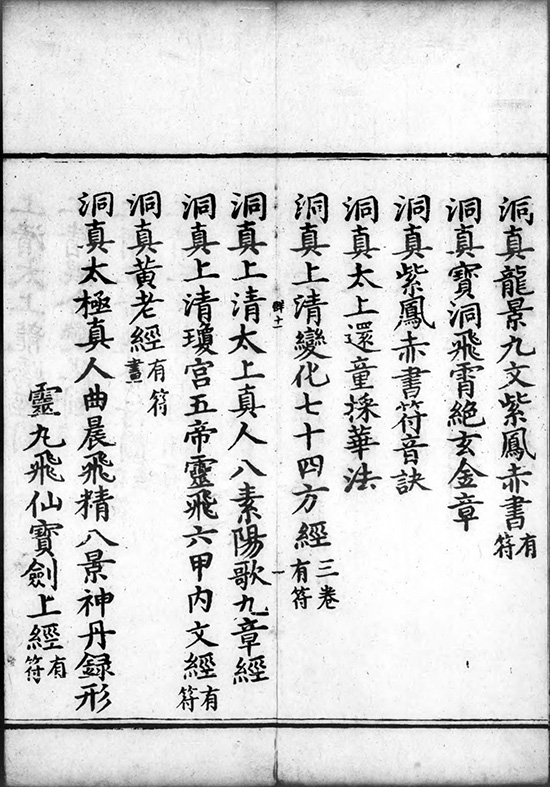 洞真龍景九文紫鳳赤書有符
洞真寶洞飛霄絶玄金章
洞真紫鳳赤書符音訣
洞真太上還童採華法
洞真上清變化七十四方經三卷有符
洞真上清太上真人八素陽歌九章經
洞真上清瓊宮五帝靈飛六甲内文經有符
洞真黃老經有符畫
洞真太極真人曲晨飛精八景神丹録形
靈九飛仙寶劍上經有符